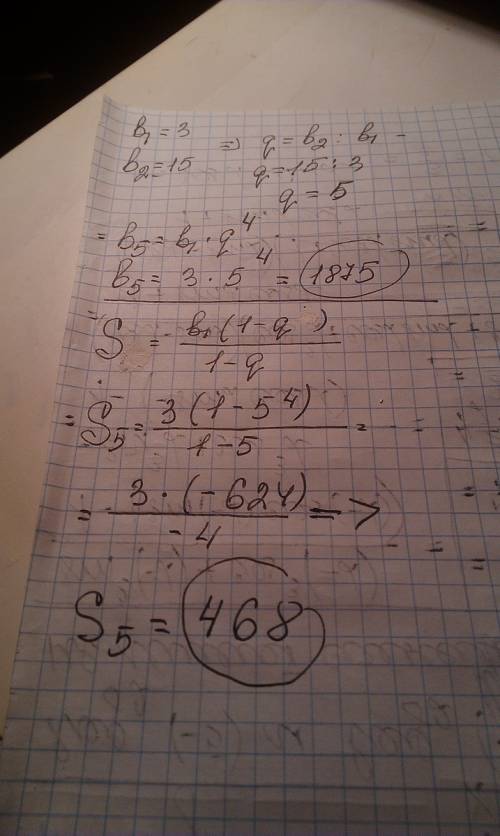 b₁ = 3 => q = b₂ : b₁ -
b₂ = 15 q = 15 : 3
q = 5
= b₅ = b₁ · q⁴
b₅ = 3 · 5⁴ = 1875
S = b₁(1-q) / 1-q
= S₅ = 3(1-5⁴) / 1-5 =
= 3·(-624) / -4 =>
S₅ = 468